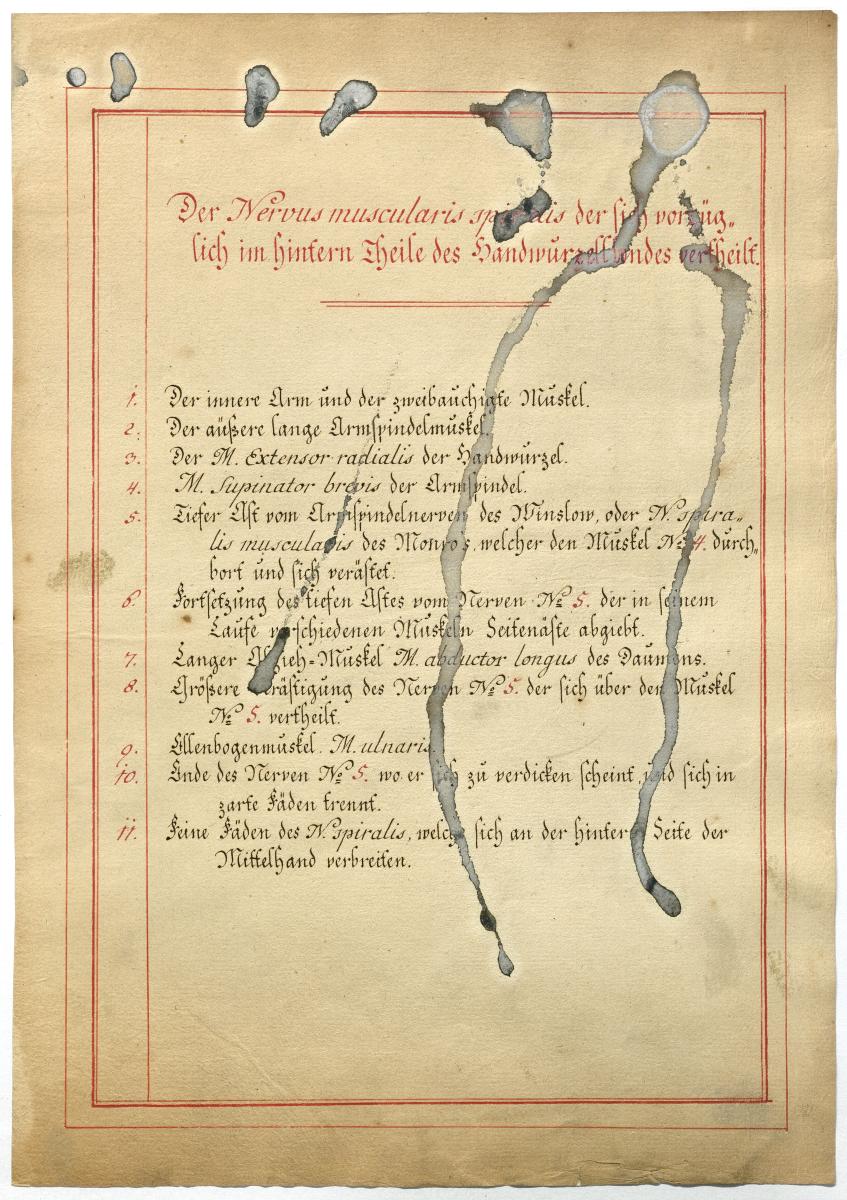 Der Nervus muscularis spiralis der sich vorzüg„
lich im hintern Theile des vertheilt.
1. Der innere Arm und der zweibauchigte Muskel.
2. Der äußere lange Armspindelmuskel.
3. Der M. Extensor radialis der Handwurzel.
4. M. Supinator brevis der Armspindel.
5. Tiefer Ast vom Armspindelnerven des Winslow, oder N. spira„
lis muscularis des Monro's, welcher den Muskel No 4. durch„
bort und sich verästet.
6. Fortsetzung des tiefen Astes vom Nerven No 5. der in seinem
Laufe verschiedenen Muskeln Seitenäste abgiebt.
7. Langer Abzieh=Muskel M. abductor longus des Daumens.
8. Größere des Nerven No 5. der sich über den Muskel
No 5. vertheilt.
9. Ellenbogenmuskel. M. ulnaris.
10. Ende des Nerven No 5. wo er sich zu verdicken scheint, und sich in
zarte Fäden trennt.
11. Feine Fäden des N. spiralis, welche sich an der hintern Seite der
Mittelhand verbreiten.